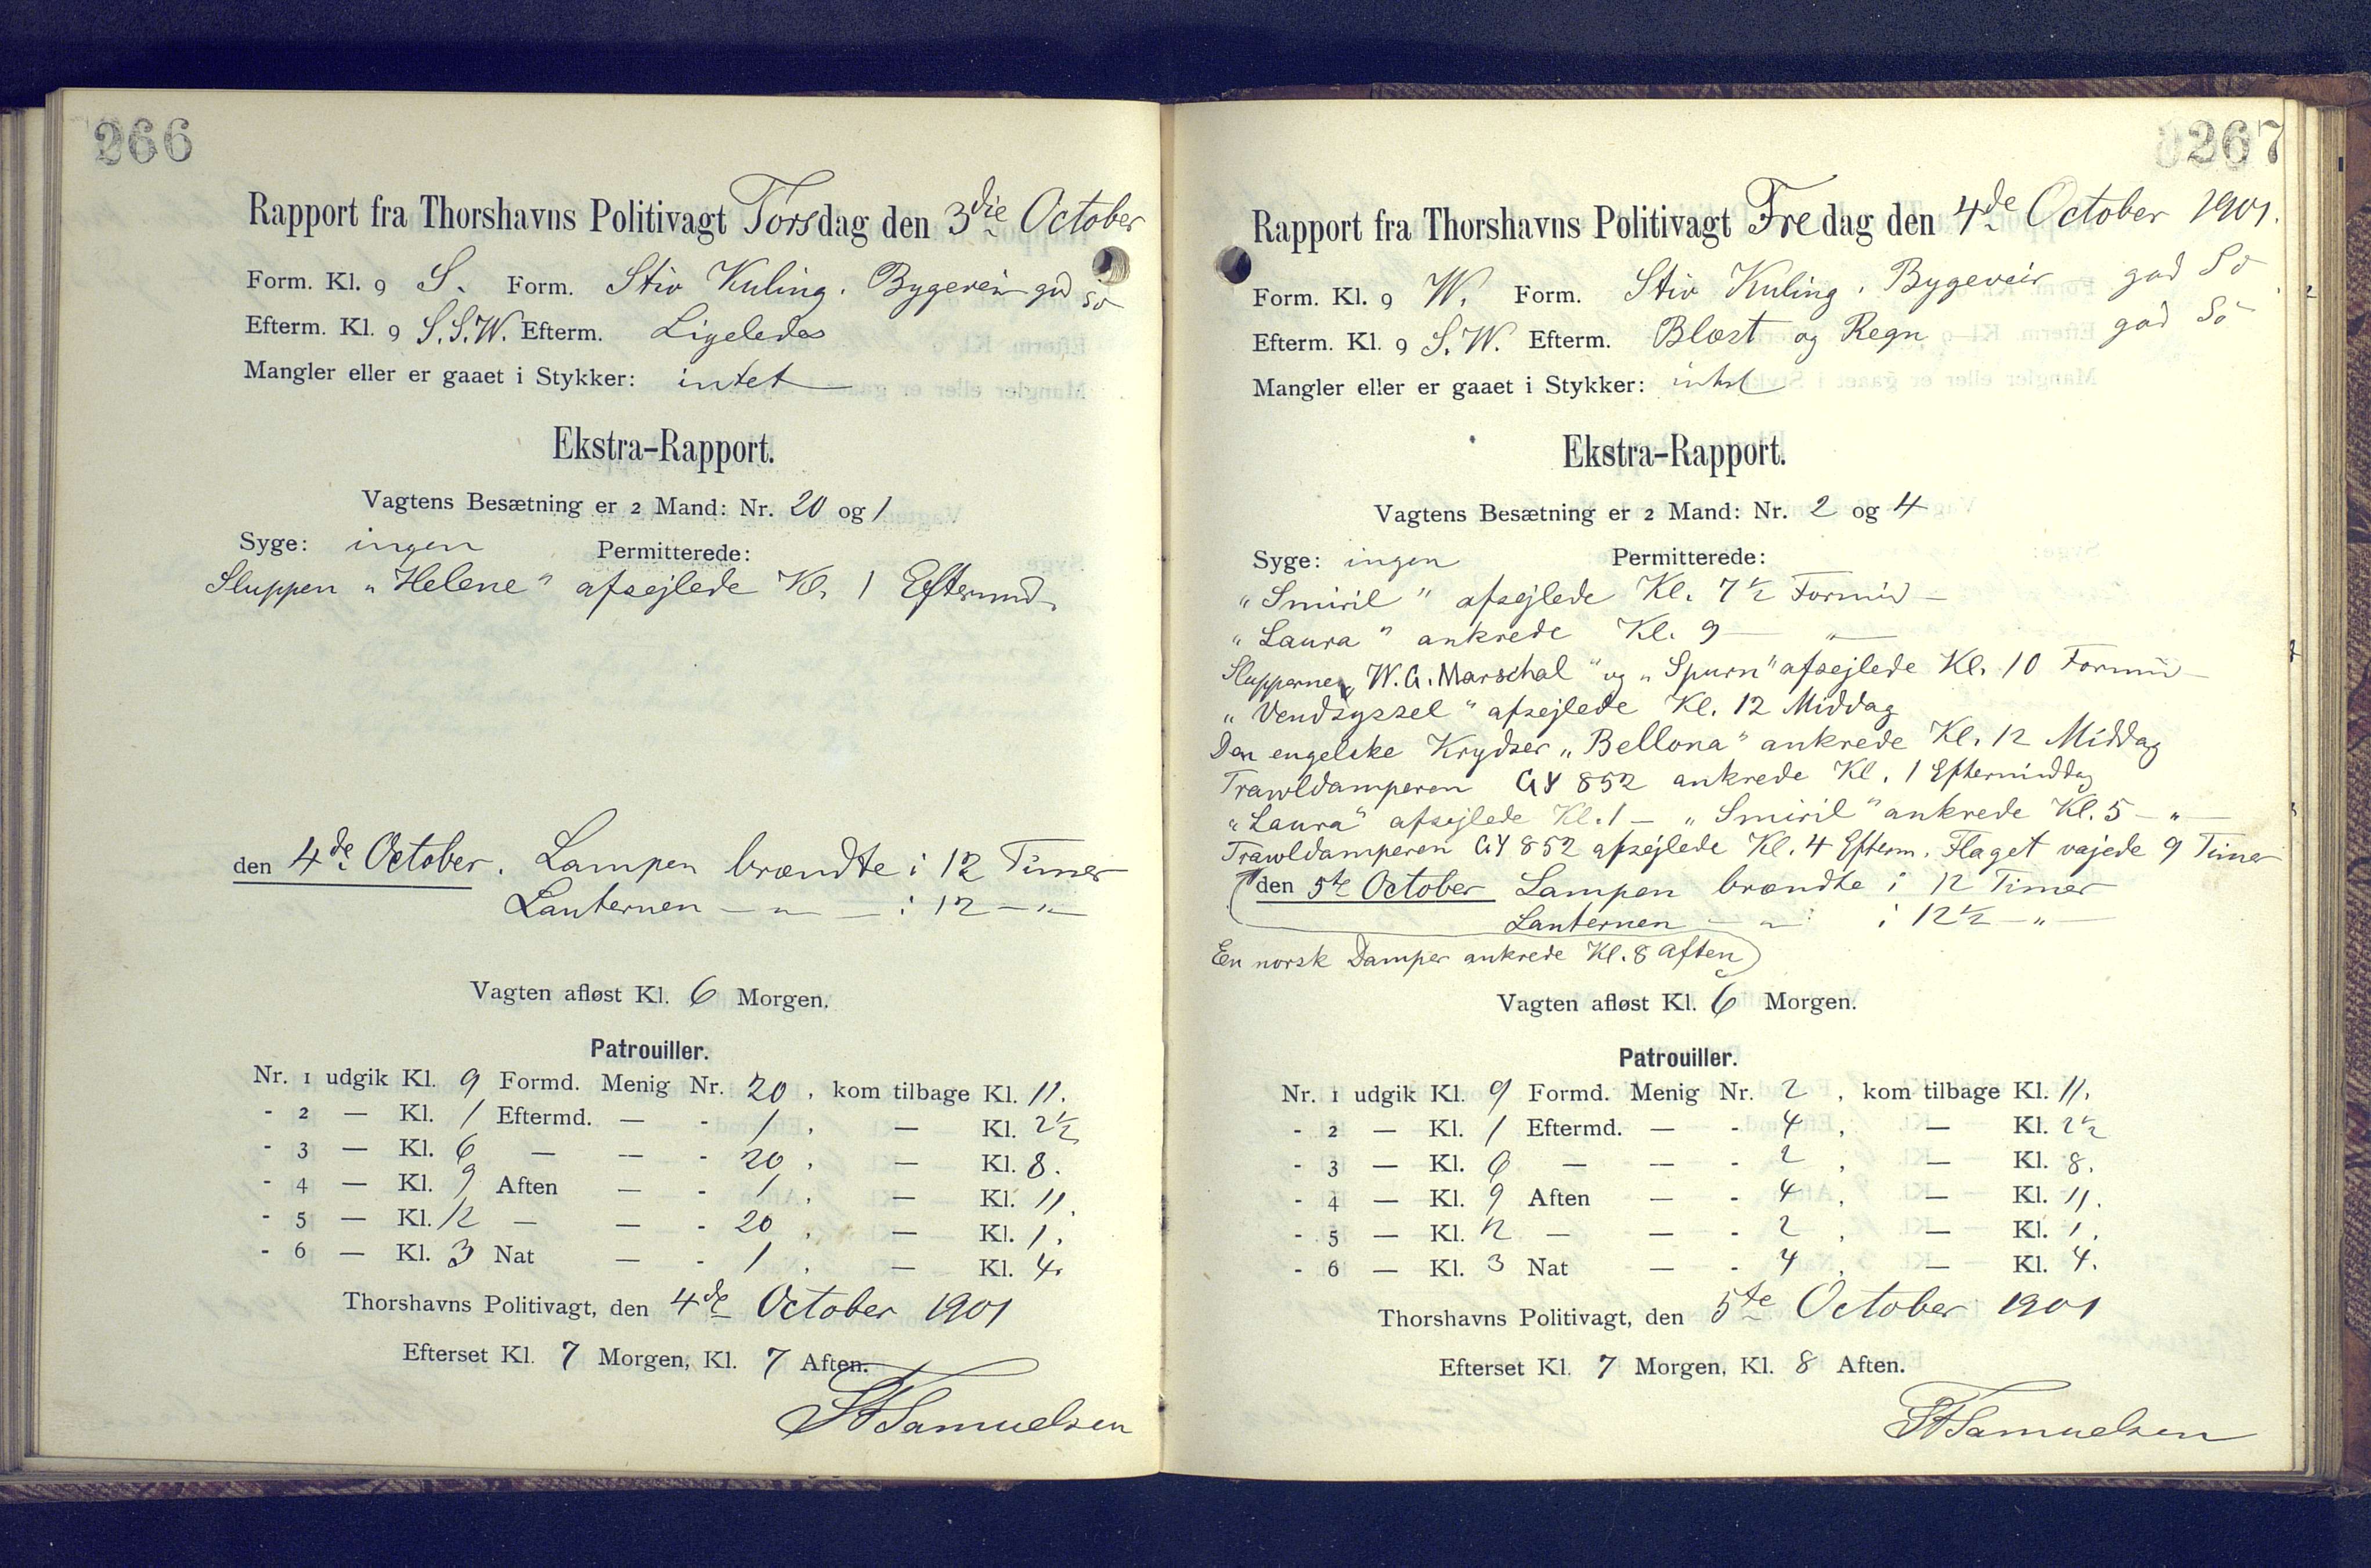 266
Rapport fra Thorshavns Politivagt Torsdag den 3die October
Form. Kl. 9 S. Form. Stiv Kuling. Bygeveir god Sø
Efterm. Kl. 9 S.S.W. Efterm. Ligeledes
Mangler eller er gaaet i Stykker: intet
Ekstra-Rapport.
Vagtens Besætning er 2 Mand: Nr. 20 og 1
Syge: ingen Permitterede:
Sluppen „Helene" afsejlede Kl. 1 Eftermd.
den 4de October. Lampen brændte i 12 Timer
Lanternen — „ — i 12 — „ —
Vagten afløst Kl. 6 Morgen.
Patrouiller.
Nr. 1 udgik Kl. 9 Formd. Menig Nr. 20, kom tilbage Kl. 11.
- 2 — Kl. 1 Eftermd. — - 1, — Kl. 2½
- 3 — Kl. 6 — — - 20, — Kl. 8.
- 4 — Kl. 9 Aften — - 1, — Kl. 11.
- 5 — Kl. 12 — — - 20, — Kl. 1.
- 6 — Kl. 3 Nat — - 1, — Kl. 4.
Thorshavns Politivagt, den 4de October 1901
Efterset Kl. 7 Morgen, Kl. 7 Aften.
Samuelsen
267
Rapport fra Thorshavns Politivagt Fredag den 4de October 1901.
Form. Kl. 9 W. Form. Stiv Kuling. Bygeveir god Sø
Efterm. Kl. 9 S.W. Efterm. Blæst og Regn god Sø
Mangler eller er gaaet i Stykker: intet
Ekstra-Rapport.
Vagtens Besætning er 2 Mand: Nr. 2 og 4
Syge: ingen Permitterede:
„Smiril" afsejlede Kl. 7½ Formid —
„Laura" ankrede Kl. 9 — „ —
Slupperne „W. G. Marschal" og „Spurn" afsejlede Kl. 10 Formid —
„Vendsyssel" afsejlede Kl. 12 Middag
Den engelske Krydser „Bellona" ankrede Kl. 12 Middag
Trawldamperen GY 852 ankrede Kl. 1 Eftermiddag
„Laura" afsejlede Kl. 1 — „Smiril" ankrede Kl. 5 — „ —
Trawldamperen GY 852 afsejlede Kl. 4 Efterm. Flaget vajede 9 Timer
den 5te October Lampen brændte i 12 Timer
Lanternen — „ — i 12½ — „ —
En norsk Damper ankrede Kl. 8 Aften
Vagten afløst Kl. 6 Morgen.
Patrouiller.
Nr. 1 udgik Kl. 9 Formd. Menig Nr. 2, kom tilbage Kl. 11.
- 2 — Kl. 1 Eftermd. — - 4, — Kl. 2½
- 3 — Kl. 6 — — - 2, — Kl. 8.
- 4 — Kl. 9 Aften — - 4, — Kl. 11.
- 5 — Kl. 12 — — - 2, — Kl. 1.
- 6 — Kl. 3 Nat — - 4, — Kl. 4.
Thorshavns Politivagt, den 5te October 1901
Efterset Kl. 7 Morgen, Kl. 8 Aften.
Samuelsen